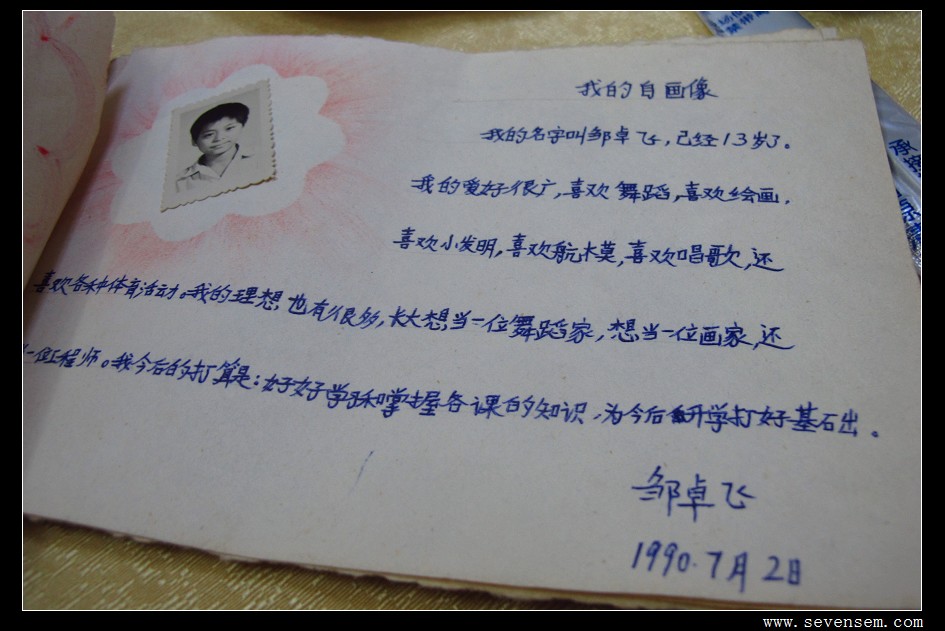 我的自画像
我的名字叫邹卓飞,已经13岁了。
我的爱好很广,喜欢舞蹈,喜欢绘画,
喜欢小发明,喜欢航模,喜欢唱歌,还
喜欢各种体育活动。我的理想也有很多,长大想当一位舞蹈家,想当一位画家,还
一位工程师。我今后的打算是:好好学习和掌握各课的知识,为今后升学打好基石出。
邹卓飞
1990.7月2日
www.sevensem.com